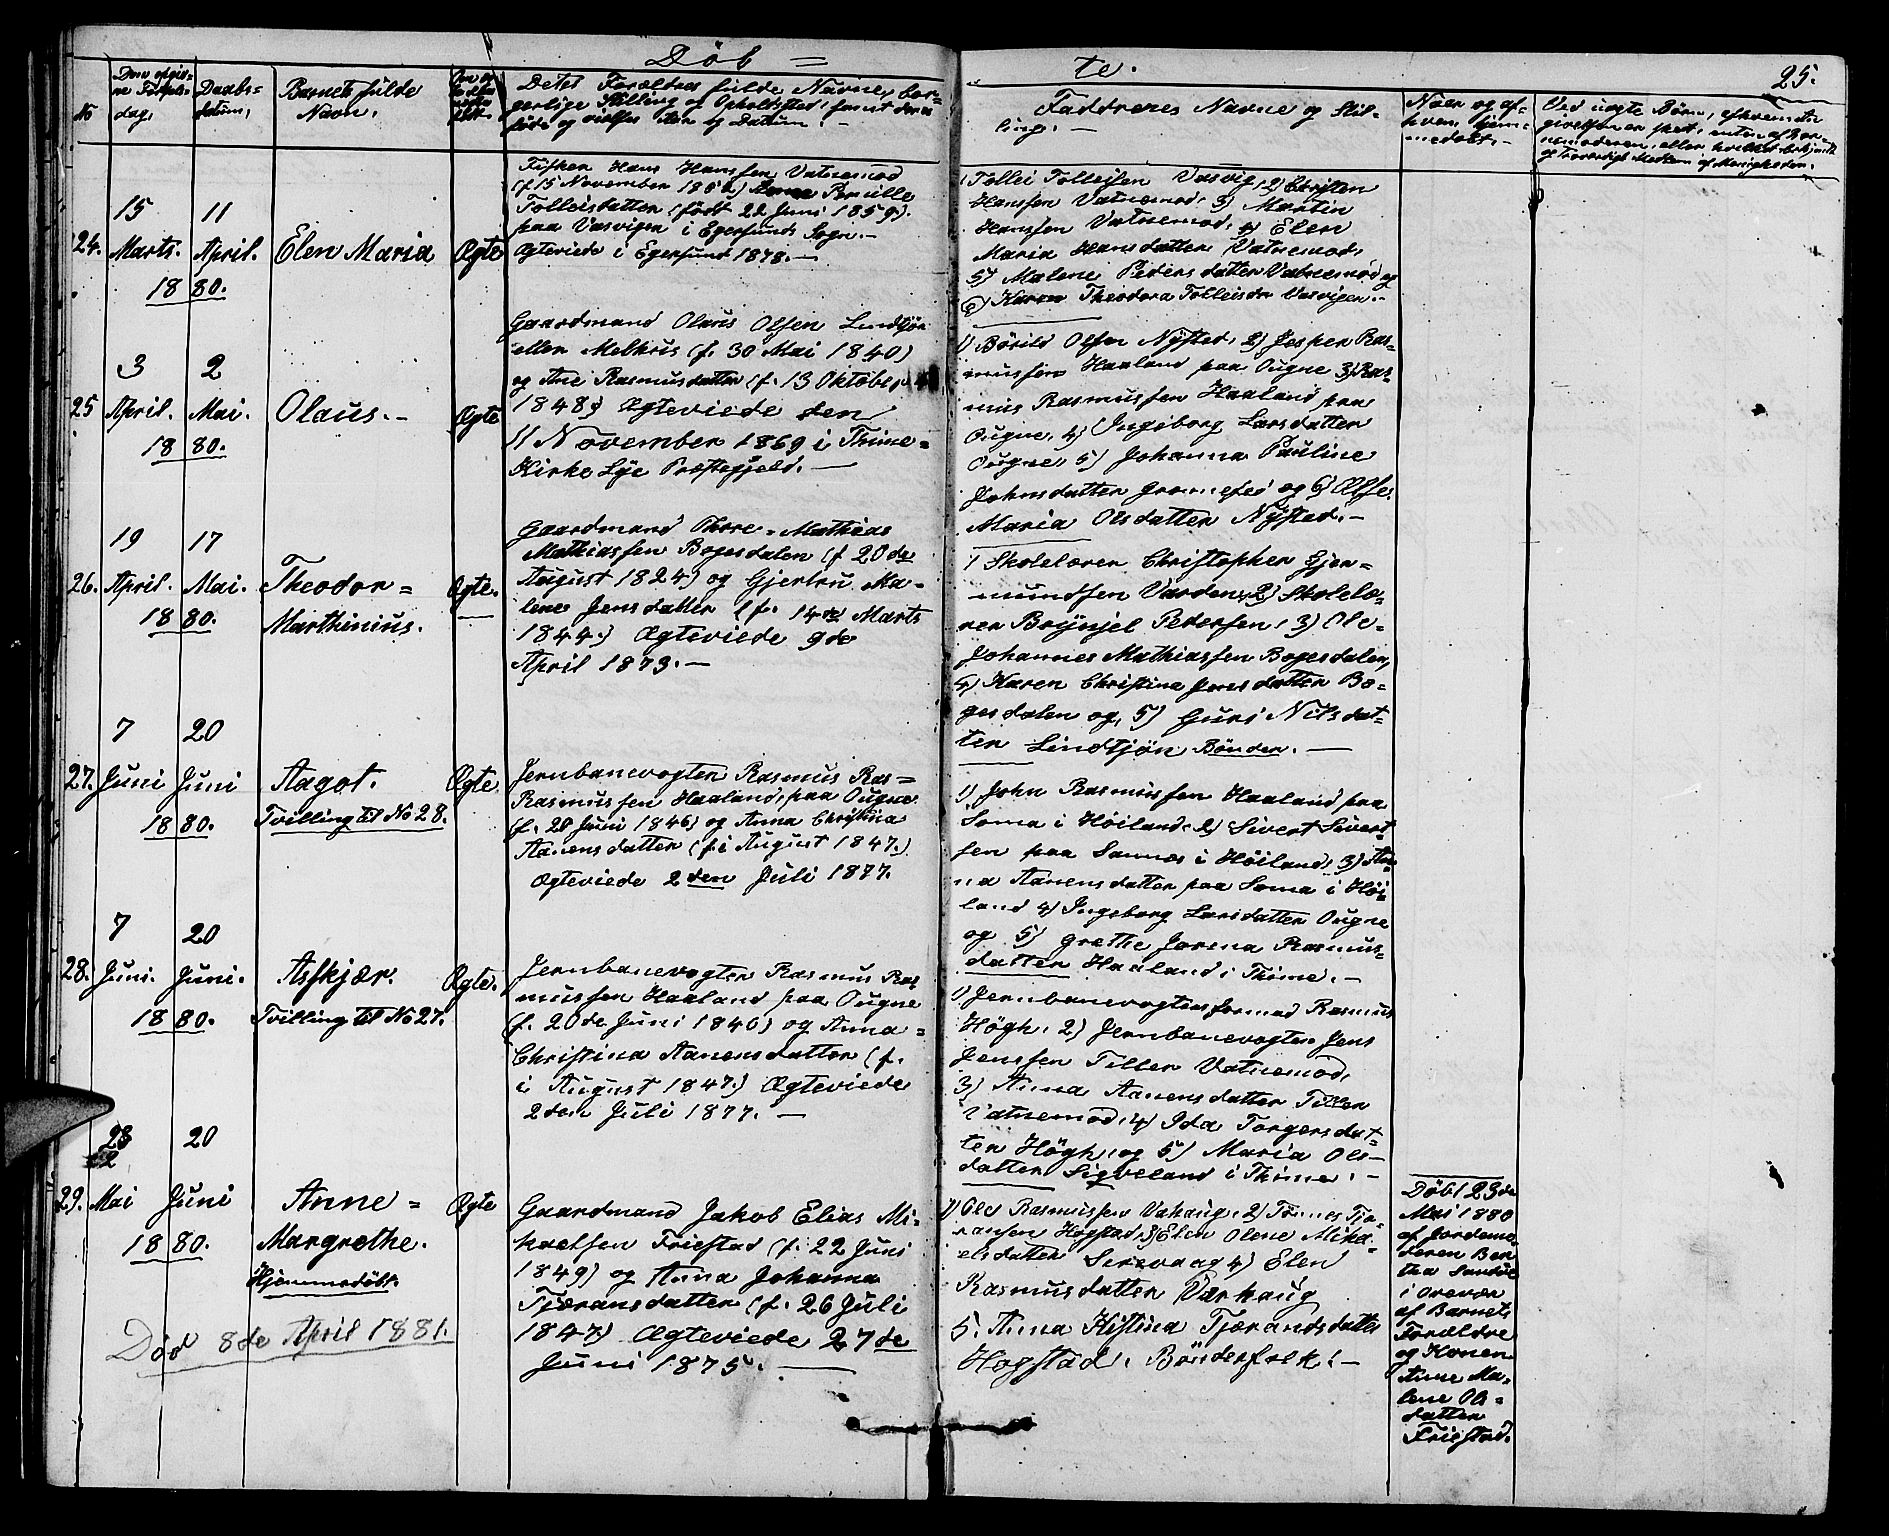 Døb =
te.
25.
No
dag.
Daabs-
datum.
Barnets fulde
Navn.
Dets Forældres fulde Navne, bor-
gerlige Stilling og Opholdssted, samt deres
føds og vielses Aar og Datum. -
Faddrenes Navne og Stil-
ling. -
Naar og af
hvem hjem-
medøbt. -
24.
15
Marts.
11
April.
1880.
Elen Maria
Ægte
Fisker Hans Hanssen Vatnemod
(f. 15 November 185) Pernille
Tolleisdatter (født 22 Juni 1859).
paa Vasvigen i Egersunds Sogn. -
Ægteviede i Egersund 1878. -
1, Tollei Tolleisen Vasvig, 2) Christen
Hanssen Vatnemod, 3) Martin
Hanssen Vatnemod, 4) Elen
Maria Hansdatter Vatnemod,
5) Malene Pedersdatter Vatnemod og
6) Karen Theodora Tolleisdr Vasvigen. -
25
3
April.
2
Mai.
1880.
Olaus. -
Ægte
Gaardmand Olaus Olsen Lindtjøn
eller Melhus (f. 30 Mai 1840)
og Ane Rasmusdatter (f. 13 Oktober
1848) Ægteviede den
11 November 1869 i Thime =
Kirke Lye Præstegjeld. -
1) Børild Olsen Nysted, 2) Jesper Ras-
mussen Haaland paa Ougne 3) Ras-
mus Rasmussen Haaland paa
Ougne, 4) Ingeborg Larsdatter
Ougne, 5) Johanna Pauline
Johnsdatter og 6)
Maria Olsdatter Nysted. -
26.
19
April.
17
Mai.
1880.
Theodor =
Marthinius.
Ægte.
Gaardmand Thore = Mathias
Mathiassen Bogesdalen (f 20de
August 1824) og Gjertru Ma-
lene Jensdatter (f. 14de Marts
1844.) Ægteviede 9de
April 1873. -
1 Skolelærer Christopher Gjer=
mundsen Varden, 2) Skolelæ-
rer Pedersen, 3) Ole-
Johannes Mathiassen Bogesdalen,
4) Karen Christina Jensdatter Bo-
gesdalen og, 5) Guri Nilsdat-
ter Lindtjøn Bønder. -
27.
7
Juni
20
Juni
1880.
Aagot.
Tvilling til No 28.
Ægte.
Jernbanevogter Rasmus Ras=
Rasmussen Haaland, paa Ougne
(f. 20 Juni 1846) og Anna Christina
Aanensdatter (f. i August 1847.)
Ægteviede 2den Juli 1877.
1) John Rasmussen Haaland paa
Soma i Høiland, 2) Sivert Sivert-
sen paa Sannæs i Høiland, 3) An-
na Aanensdatter paa Soma i Høi
land 4) Ingeborg Larsdatter Ougne
og 5) Grethe Jorina Rasmus-
datter Haaland i Thime. -
28.
7
Juni.
20
Juni.
1880.
Asfkjær.
Tvilling til No 27.
Ægte.
Jernbanevogter Rasmus Ras
mussen Haaland paa Ougne
(f. 20de Juni 1846) og Anna =
Christina Aanensdatter (f.
i August 1847.) Ægteviede
2den Juli 1877. -
1) Jernbanevogterformad Rasmus
Høgh, 2) Jernbanevogter Jens
Jenssen Tiller Vatnemod,
3) Anna Aanensdatter Tiller
Vatnemod, 4) Ida Torgersdat=
ter Høgh, og 5) Maria Ols-
datter Sigveland i Thime. -
29.
23
Mai
20
Juni
1880.
Anne =
Margrethe.
Hjemmedøbt.
Død 8de April 1881.
Ægte
Gaardmand Jakob Elias Mi-
kaelsen Friestad (f. 22 Juni
1849) og Anna Johanna
Tjæransdatter (f. 26 Juli
1847) Ægteviede 27de
Juni 1875. -
1) Ole Rasmussen Vahaug, 2) Tønnes Tjæ-
ransen Høgstad, 3) Elen Olene Mika-
elsdatter Sirevaag 4) Elen
Rasmusdatter Varhaug
5. Anna Kistina Tjærandsdatter
Høgstad. Bønderfolk. -
Døbt 23de
Mai 1880
af Jordemo
deren Ber
tha
i Overvær
af Barnets
Forældre
og Konen
Anne Ma-
lene Ols-
datter
Friestad.